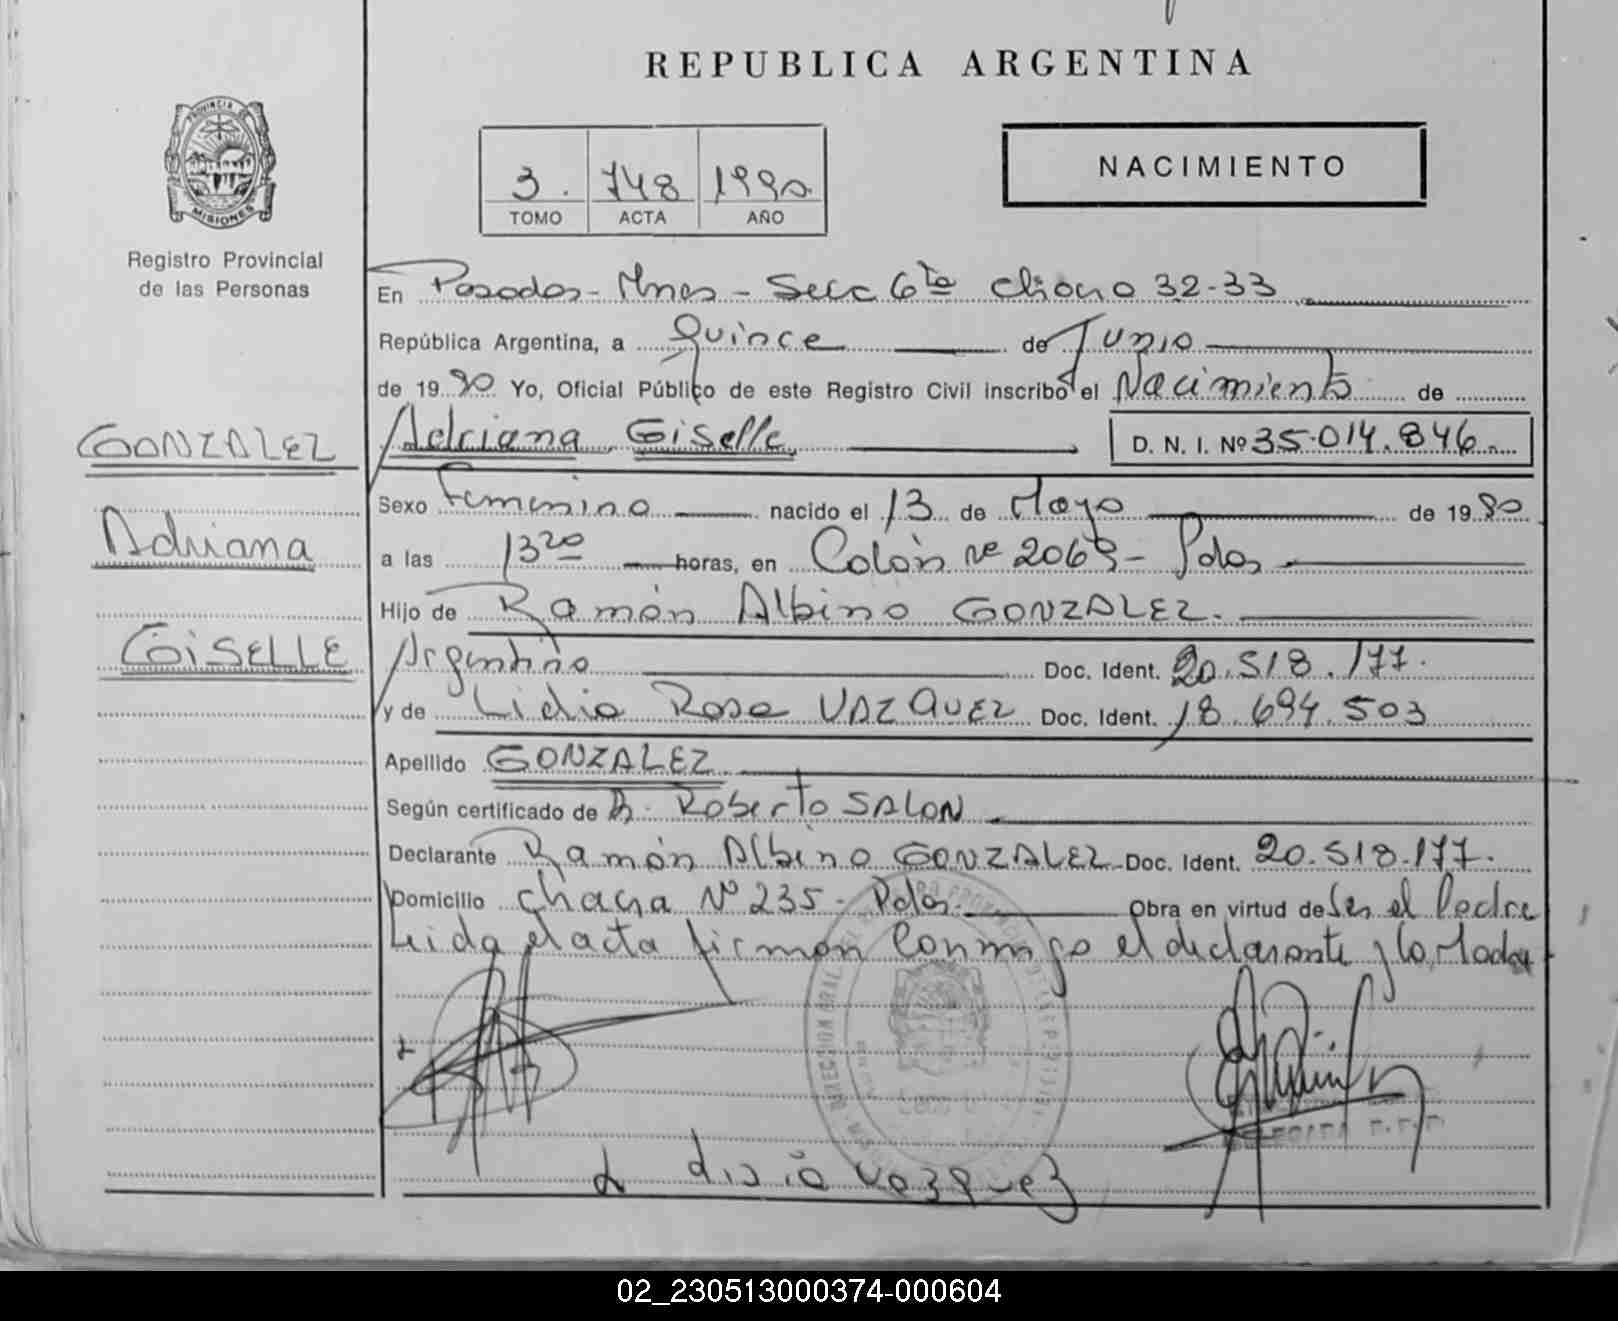 REPUBLICA ARGENTINA
PROVINCIA DE
MISIONES
Registro Provincial
de las Personas
3. 748 1990
TOMO ACTA AÑO
NACIMIENTO
En Posadas - Mnes - Secc 6ta Chacra 32-33
República Argentina, a Quince de Junio
de 1990 Yo, Oficial Público de este Registro Civil inscribo el Nacimiento de
GONZALEZ
Adriana Giselle
D. N. I. Nº 35.014.846
Sexo Femenino nacido el 13 de Mayo de 1990
Adriana
a las 13 20 horas, en Colón Nº 2069 - Pdas
Hijo de Ramón Albino GONZALEZ.
GiSELLE
Argentino Doc. Ident. 20.518.177.
y de Lidia Rosa VAZQUEZ Doc. Ident. 18.694.503
Apellido GONZALEZ
Según certificado de Dr. Roberto SALON
Declarante Ramón Albino GONZALEZ Doc. Ident. 20.518.177.
Domicilio Chacra Nº 235 - Pdas. Obra en virtud de Ser el Padre
Leida el acta firman conmigo el declarante y la Madre
Lidia Vazquez
02_230513000374-000604